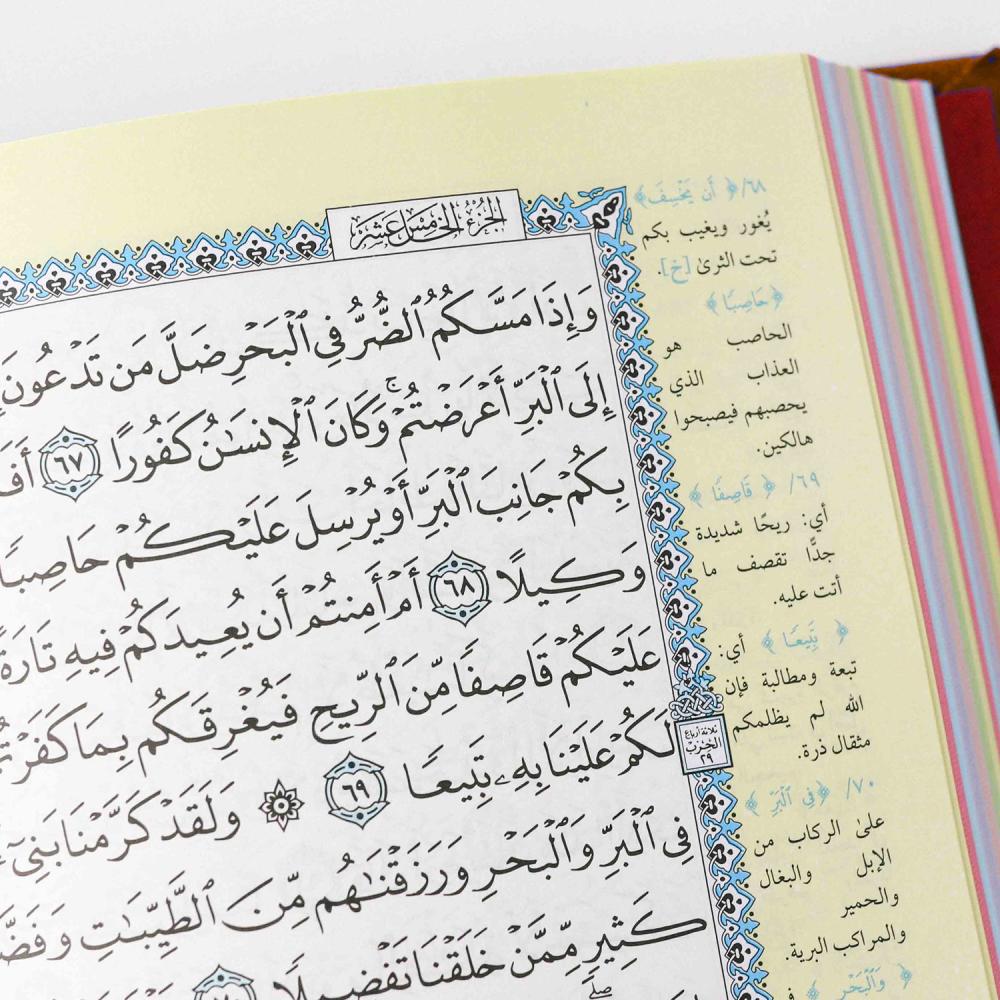 الجزء الخامس عشر
وَإِذَا مَسَّكُمُ ٱلضُّرُّ فِي ٱلْبَحْرِ ضَلَّ مَن تَدْعُونَ
إِلَى ٱلْبَرِّ أَعْرَضْتُمْ ۚ وَكَانَ ٱلْإِنسَـٰنُ كَفُورًا ٦٧
بِكُمْ جَانِبَ ٱلْبَرِّ أَوْ يُرْسِلَ عَلَيْكُمْ حَاصِبًا
وَكِيلًا ٦٨ أَمْ أَمِنتُمْ أَن يُعِيدَكُمْ فِيهِ تَارَةً
عَلَيْكُمْ قَاصِفًا مِّنَ ٱلرِّيحِ فَيُغْرِقَكُم بِمَا كَفَرْتُمْ
لَكُمْ عَلَيْنَا بِهِۦ تَبِيعًا ٦٩ ۞ وَلَقَدْ كَرَّمْنَا بَنِىٓ
فِي ٱلْبَرِّ وَٱلْبَحْرِ وَرَزَقْنَـٰهُم مِّنَ ٱلطَّيِّبَـٰتِ
كَثِيرٍ مِّمَّنْ خَلَقْنَا تَفْضِيلًا ٧٠
ثلاثة أرباع
الحزب
٢٩
٦٨/ ﴿أَن يَخْسِفَ﴾
يُغور ويغيب بكم
تحت الثرىٰ [خ].
﴿حَاصِبًا﴾
الحاصب هو
العذاب الذي
يحصبهم فيصبحوا
هالكين.
٦٩/ ﴿قَاصِفًا﴾
أي: ريحًا شديدة
جدًّا تقصف ما
أتت عليه.
﴿تَبِيعًا﴾ أي:
تبعة ومطالبة فإن
الله لم يظلمكم
مثقال ذرة.
٧٠/ ﴿فِي ٱلْبَرِّ﴾
علىٰ الركاب من
الإبل والبغال
والحمير
والمراكب البرية.
﴿وَٱلْبَحْرِ﴾ في